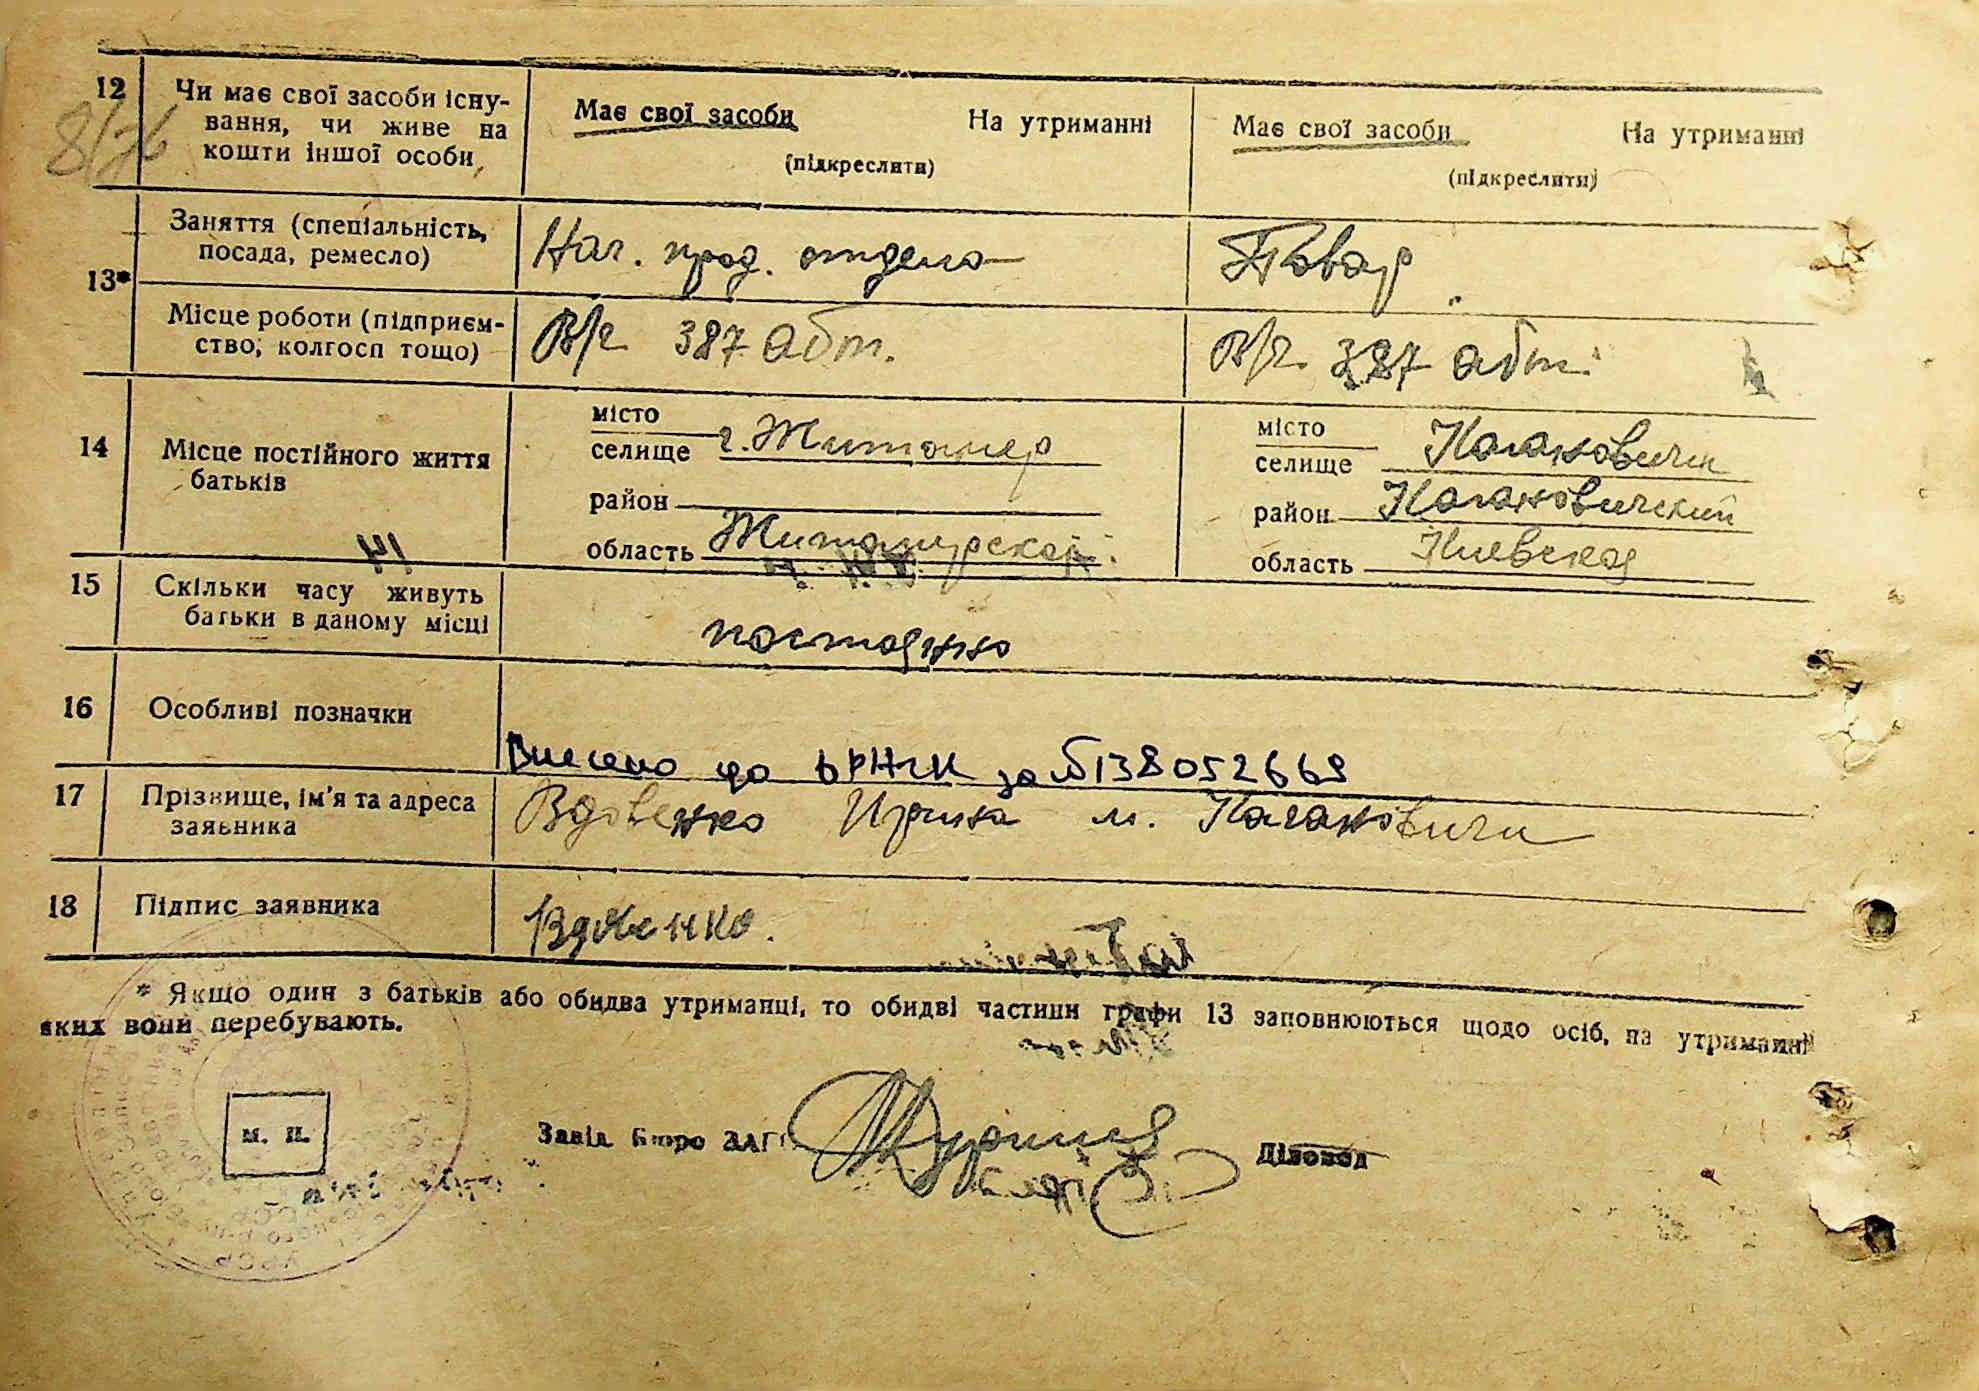 12 Чи має свої засоби існу- Має свої засоби На утриманні Має свої засоби На утриманні
вання, чи живе на
кошти іншої особи (підкреслити) (підкреслити)
13* Заняття (спеціальність, Нач. прод. отдела Повар
посада, ремесло)
Місце роботи (підприєм- В/ч 387 абт. В/ч. 387 абт.
ство, колгосп тощо)
14 Місце постійного життя
батьків
місто
селище г. Житомир
район
область Житомирская
місто
селище Каганович
район Кагановичский
область Киевская
15 Скільки часу живуть
батьки в даному місці постоянно
16 Особливі позначки
Внесено до за №138052669
17 Прізвище, ім'я та адреса Вдовенко Ирина м. Кагановичи
заявника
18 Підпис заявника Вдовенко.
* Якщо один з батьків або обидва утриманці, то обидві частини графи 13 заповнюються щодо осіб, на утриманні
яких вони перебувають.
М. П. Завід. бюро ЗАГС Діловод